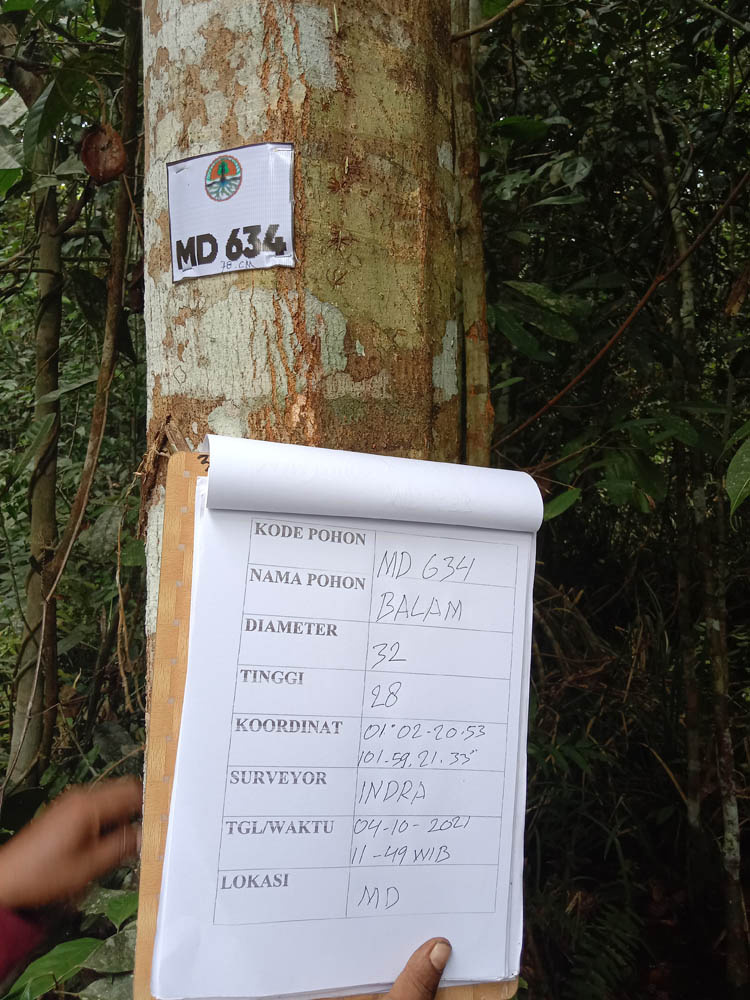 MD 634
78 CM
KODE POHON MD 634
NAMA POHON BALAM
DIAMETER 32
TINGGI 28
KOORDINAT 01° 02-20.53
101-59.21.33"
SURVEYOR INDRA
TGL/WAKTU 04-10-2021
11-49 WIB
LOKASI MD